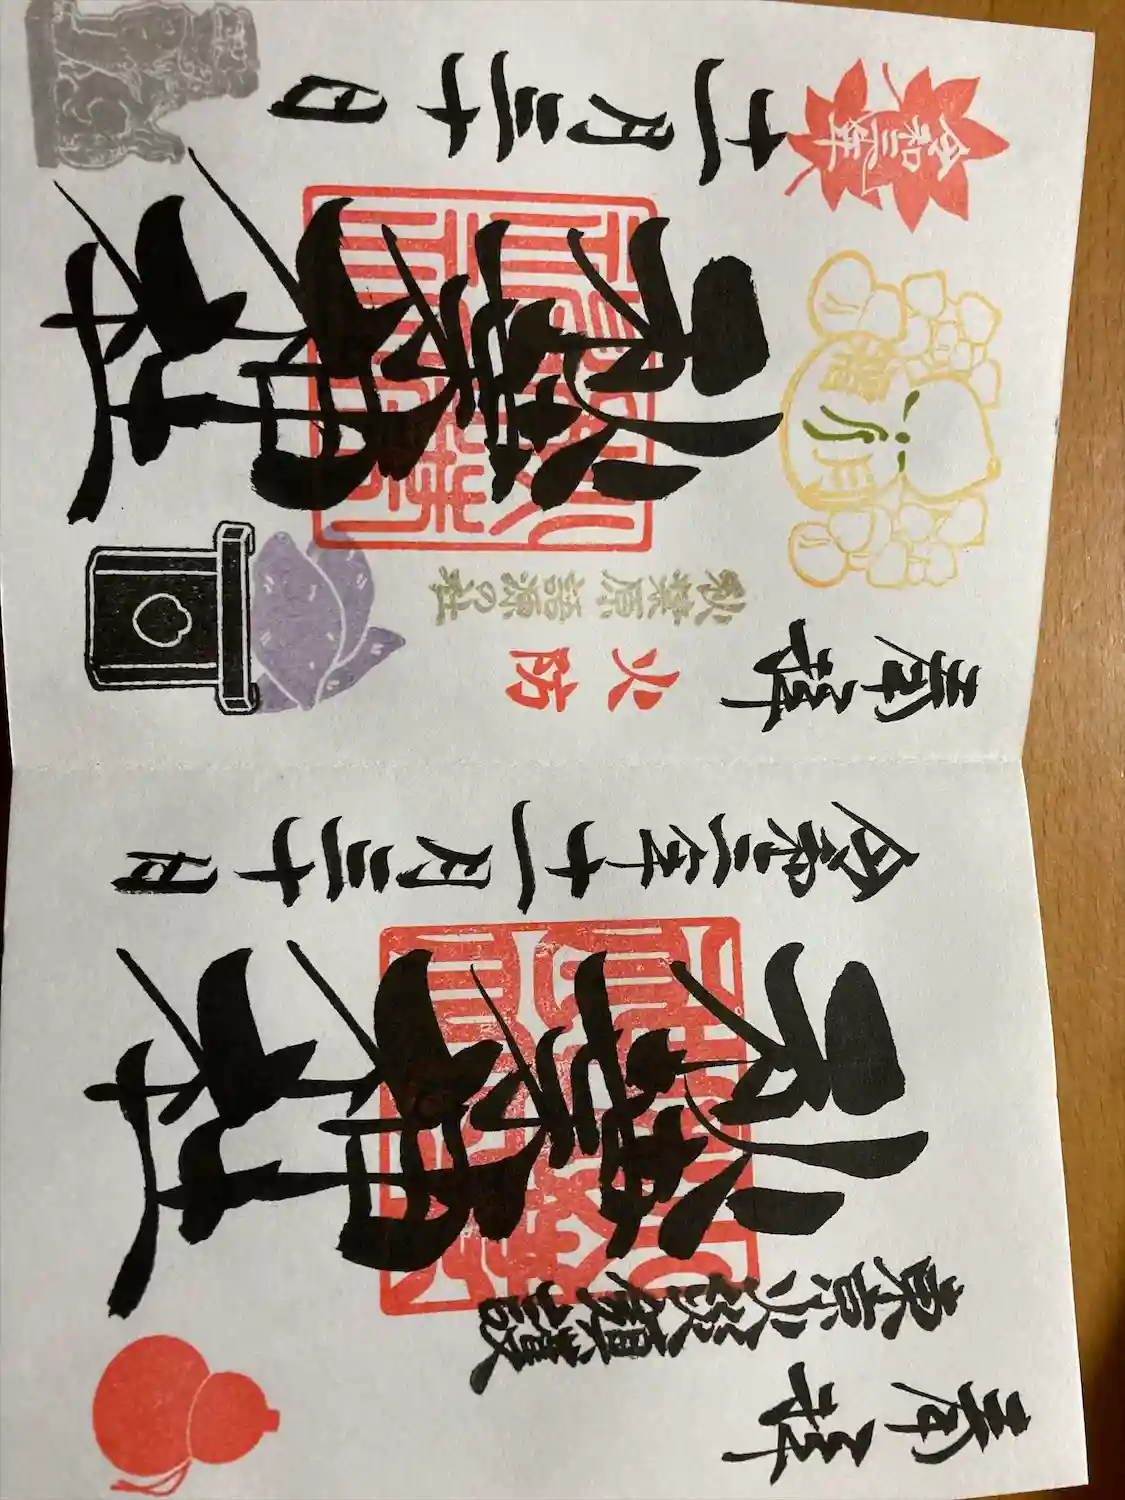 奉拝
秋葉神社
令和三年十一月三十日
奉拝
火防
秋葉原語源の社
秋葉神社
令和三年
十一月三十日